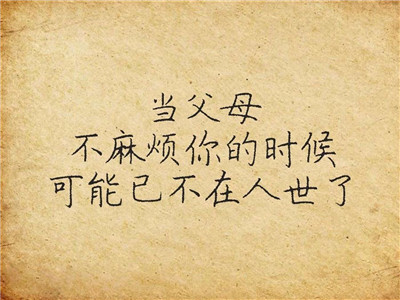 当父母
不麻烦你的时候
可能已不在人世了